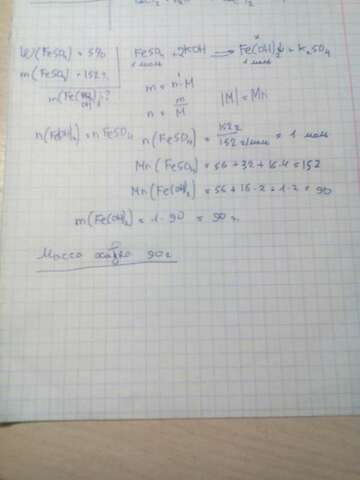 W(FeSO₄) = 5%
m(FeSO₄) = 152г.
m(Fe(OH)₂) - ?
FeSO₄ + 2KOH → Fe(OH)₂↓ + K₂SO₄
1 моль 1 моль
x
m = n · M
n = m/M |M| = Mr
n(Fe(OH)₂) = n FeSO₄ n(FeSO₄) = 152г / 152 г/моль = 1 моль
Mr(FeSO₄) = 56 + 32 + 16·4 = 152
Mr(Fe(OH)₂) = 56 + 16·2 + 1·2 = 90
m(Fe(OH)₂) = 1 · 90 = 90 г.
Масса осадка 90г